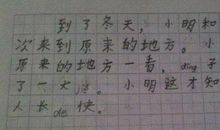 到了冬天，小明和
次来到原来的地方。小
原来的地方一看，ding子
了一大。小明这才知
人长de快。